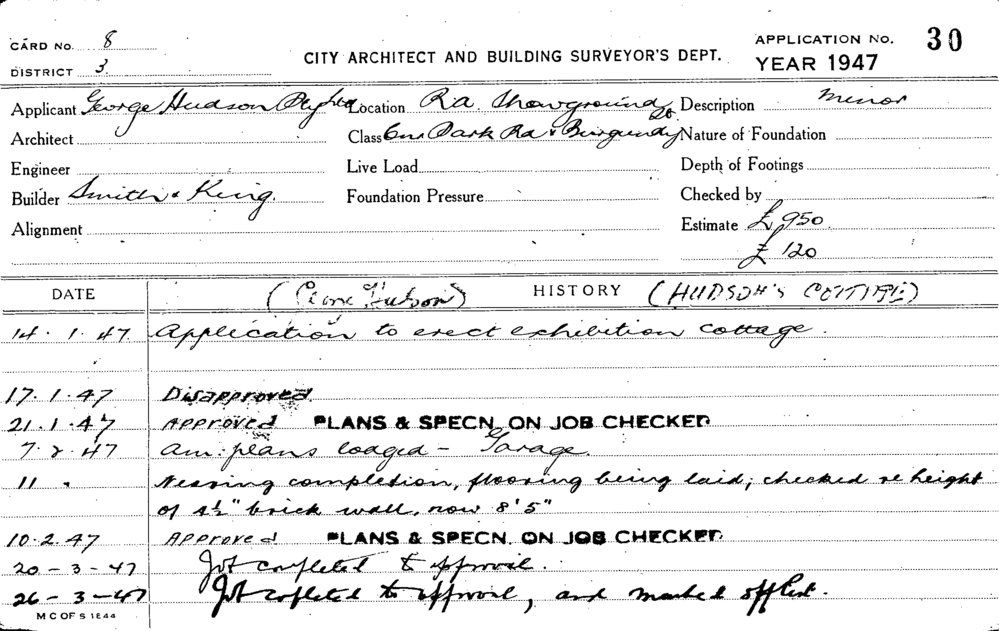 CARD No. 8
DISTRICT 3
CITY ARCHITECT AND BUILDING SURVEYOR'S DEPT.
APPLICATION No. 30
YEAR 1947
Applicant George Hudson Pty Ltd
Location R.A. Showground
Description Minor
Architect
Class Cnr Park Rd & Burgundy
Nature of Foundation
Engineer
Live Load
Depth of Footings
Builder Smith & King.
Foundation Pressure
Checked by
Alignment
Estimate £950
£120
DATE
HISTORY
(HUDSON'S COTTAGE)
14.1.47 Application to erect exhibition cottage.
17.1.47 Disapproved.
21.1.47 APPROVED PLANS & SPECN. ON JOB CHECKED
7.2.47 Am: plans lodged - Garage.
11 " Nearing completion, flooring being laid; checked re height
of 4½" brick wall, now 8'5"
10.2.47 APPROVED PLANS & SPECN. ON JOB CHECKED
20-3-47 Job completed to approval.
26-3-47 Job completed to approval, and marked off
M C OF S 1844